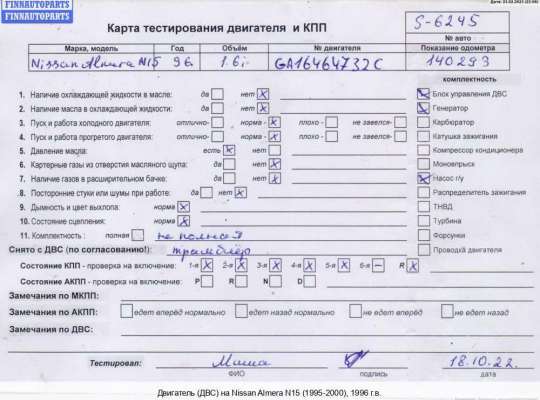 FINNAUTOPARTS
FINNAUTOPARTS
FINNAUTOPARTS
Карта тестирования двигателя и КПП
S-6245
№ авто
Марка, модель Год Объём № двигателя Показание одометра
Nissan Almera N15 96 1.6i GA16464732C 140293
комплектность
1. Наличие охлаждающей жидкости в масле: да нет X Блок управления ДВС
2. Наличие масла в охлаждающей жидкости: да нет X Генератор
3. Пуск и работа холодного двигателя: отлично- норма - X плохо - не завелся- Карбюратор
4. Пуск и работа прогретого двигателя: отлично- норма - X плохо - не завелся- Катушка зажигания
5. Давление масла: есть X нет Компрессор кондиционера
6. Картерные газы из отверстия масляного щупа: да нет X Моновпрыск
7. Наличие газов в расширительном бачке: да нет X Насос г/у
8. Посторонние стуки или шумы при работе: да нет X Распределитель зажигания
9. Дымность и цвет выхлопа: норма X ТНВД
10. Состояние сцепления: норма X Турбина
11. Комплектность: полная не полная Форсунки
Снято с ДВС (по согласованию!): трамблёр Проводка двигателя
Состояние КПП - проверка на включение: 1-я X 2-я X 3-я X 4-я X 5-я X 6-я – R X
Состояние АКПП - проверка на включение: P R N D
Замечания по МКПП:
Замечания по АКПП: едет вперёд нормально едет назад нормально не едет вперёд не едет назад
Замечания по ДВС:
Тестировал: Миша 18.10.22
ФИО подпись дата
Двигатель (ДВС) на Nissan Almera N15 (1995-2000), 1996 г.в.